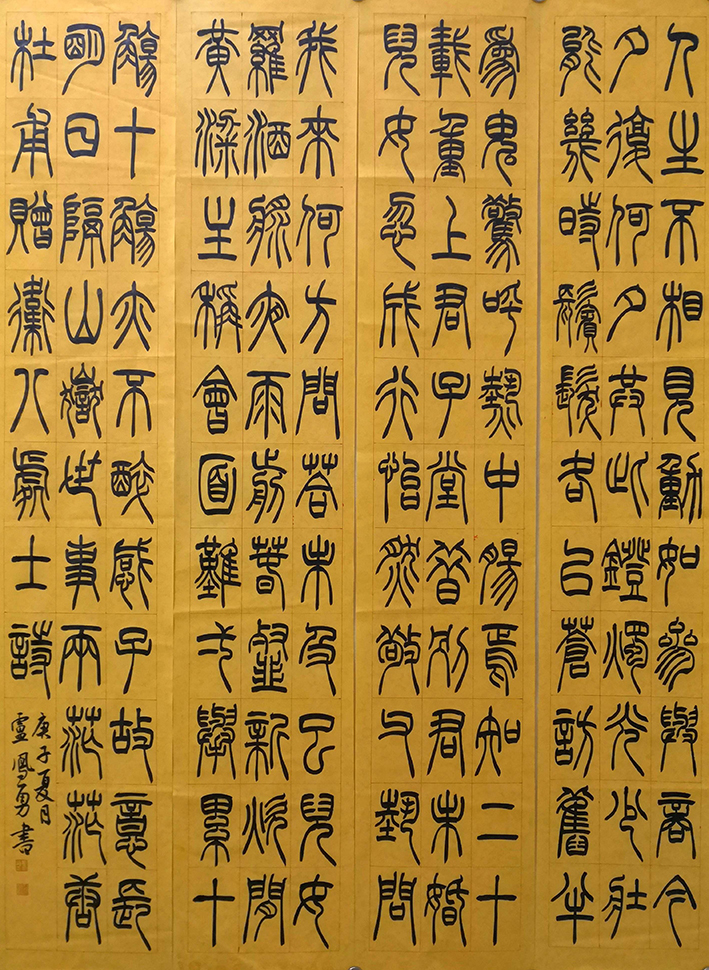 人生不相見動如參與商今
夕復何夕共此鐙燭光少壯
能幾時鬢髮各已蒼訪舊半
為鬼驚呼熱中腸焉知二十
載重上君子堂昔別君未婚
兒女忽成行怡然敬父執問
我來何方問答未及已兒女
羅酒漿夜雨剪春韭新炊間
黃粱主稱會面難弌舉累十
觴十觴亦不醉感子故意長
明日隔山嶽世事兩茫茫唐
杜甫贈衛八處士詩
庚子夏月
鳳勇書